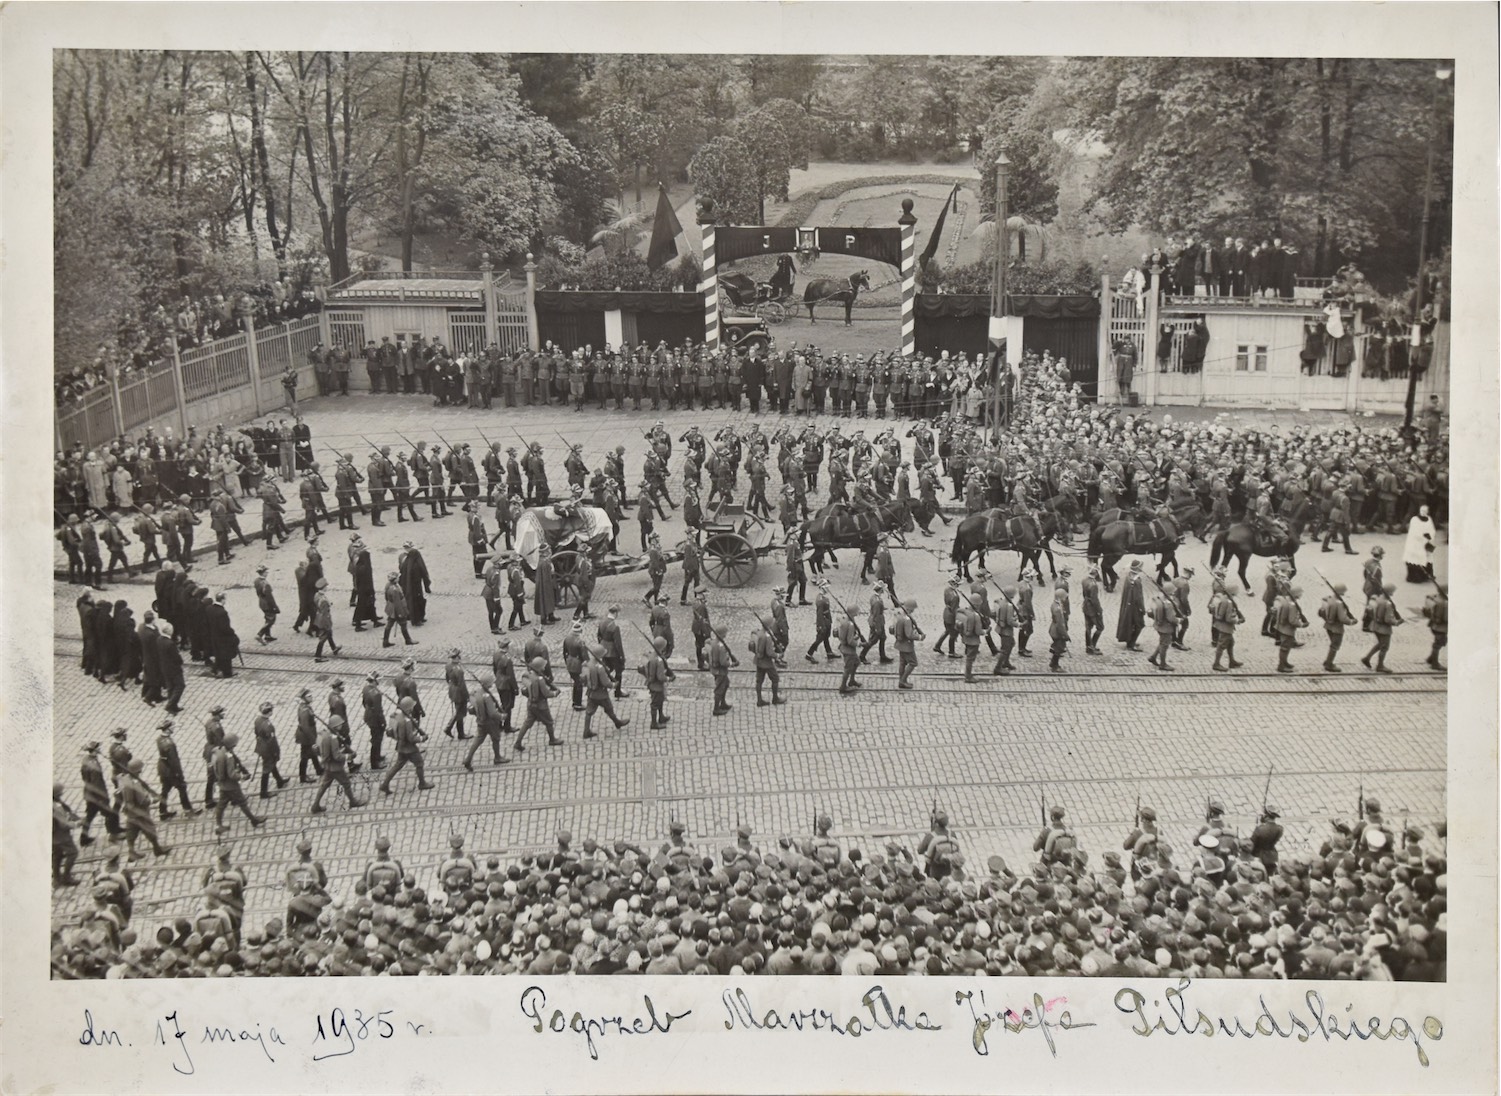 J P
dn. 17 maja 1935 r. Pogrzeb Marszałka Józefa Piłsudskiego